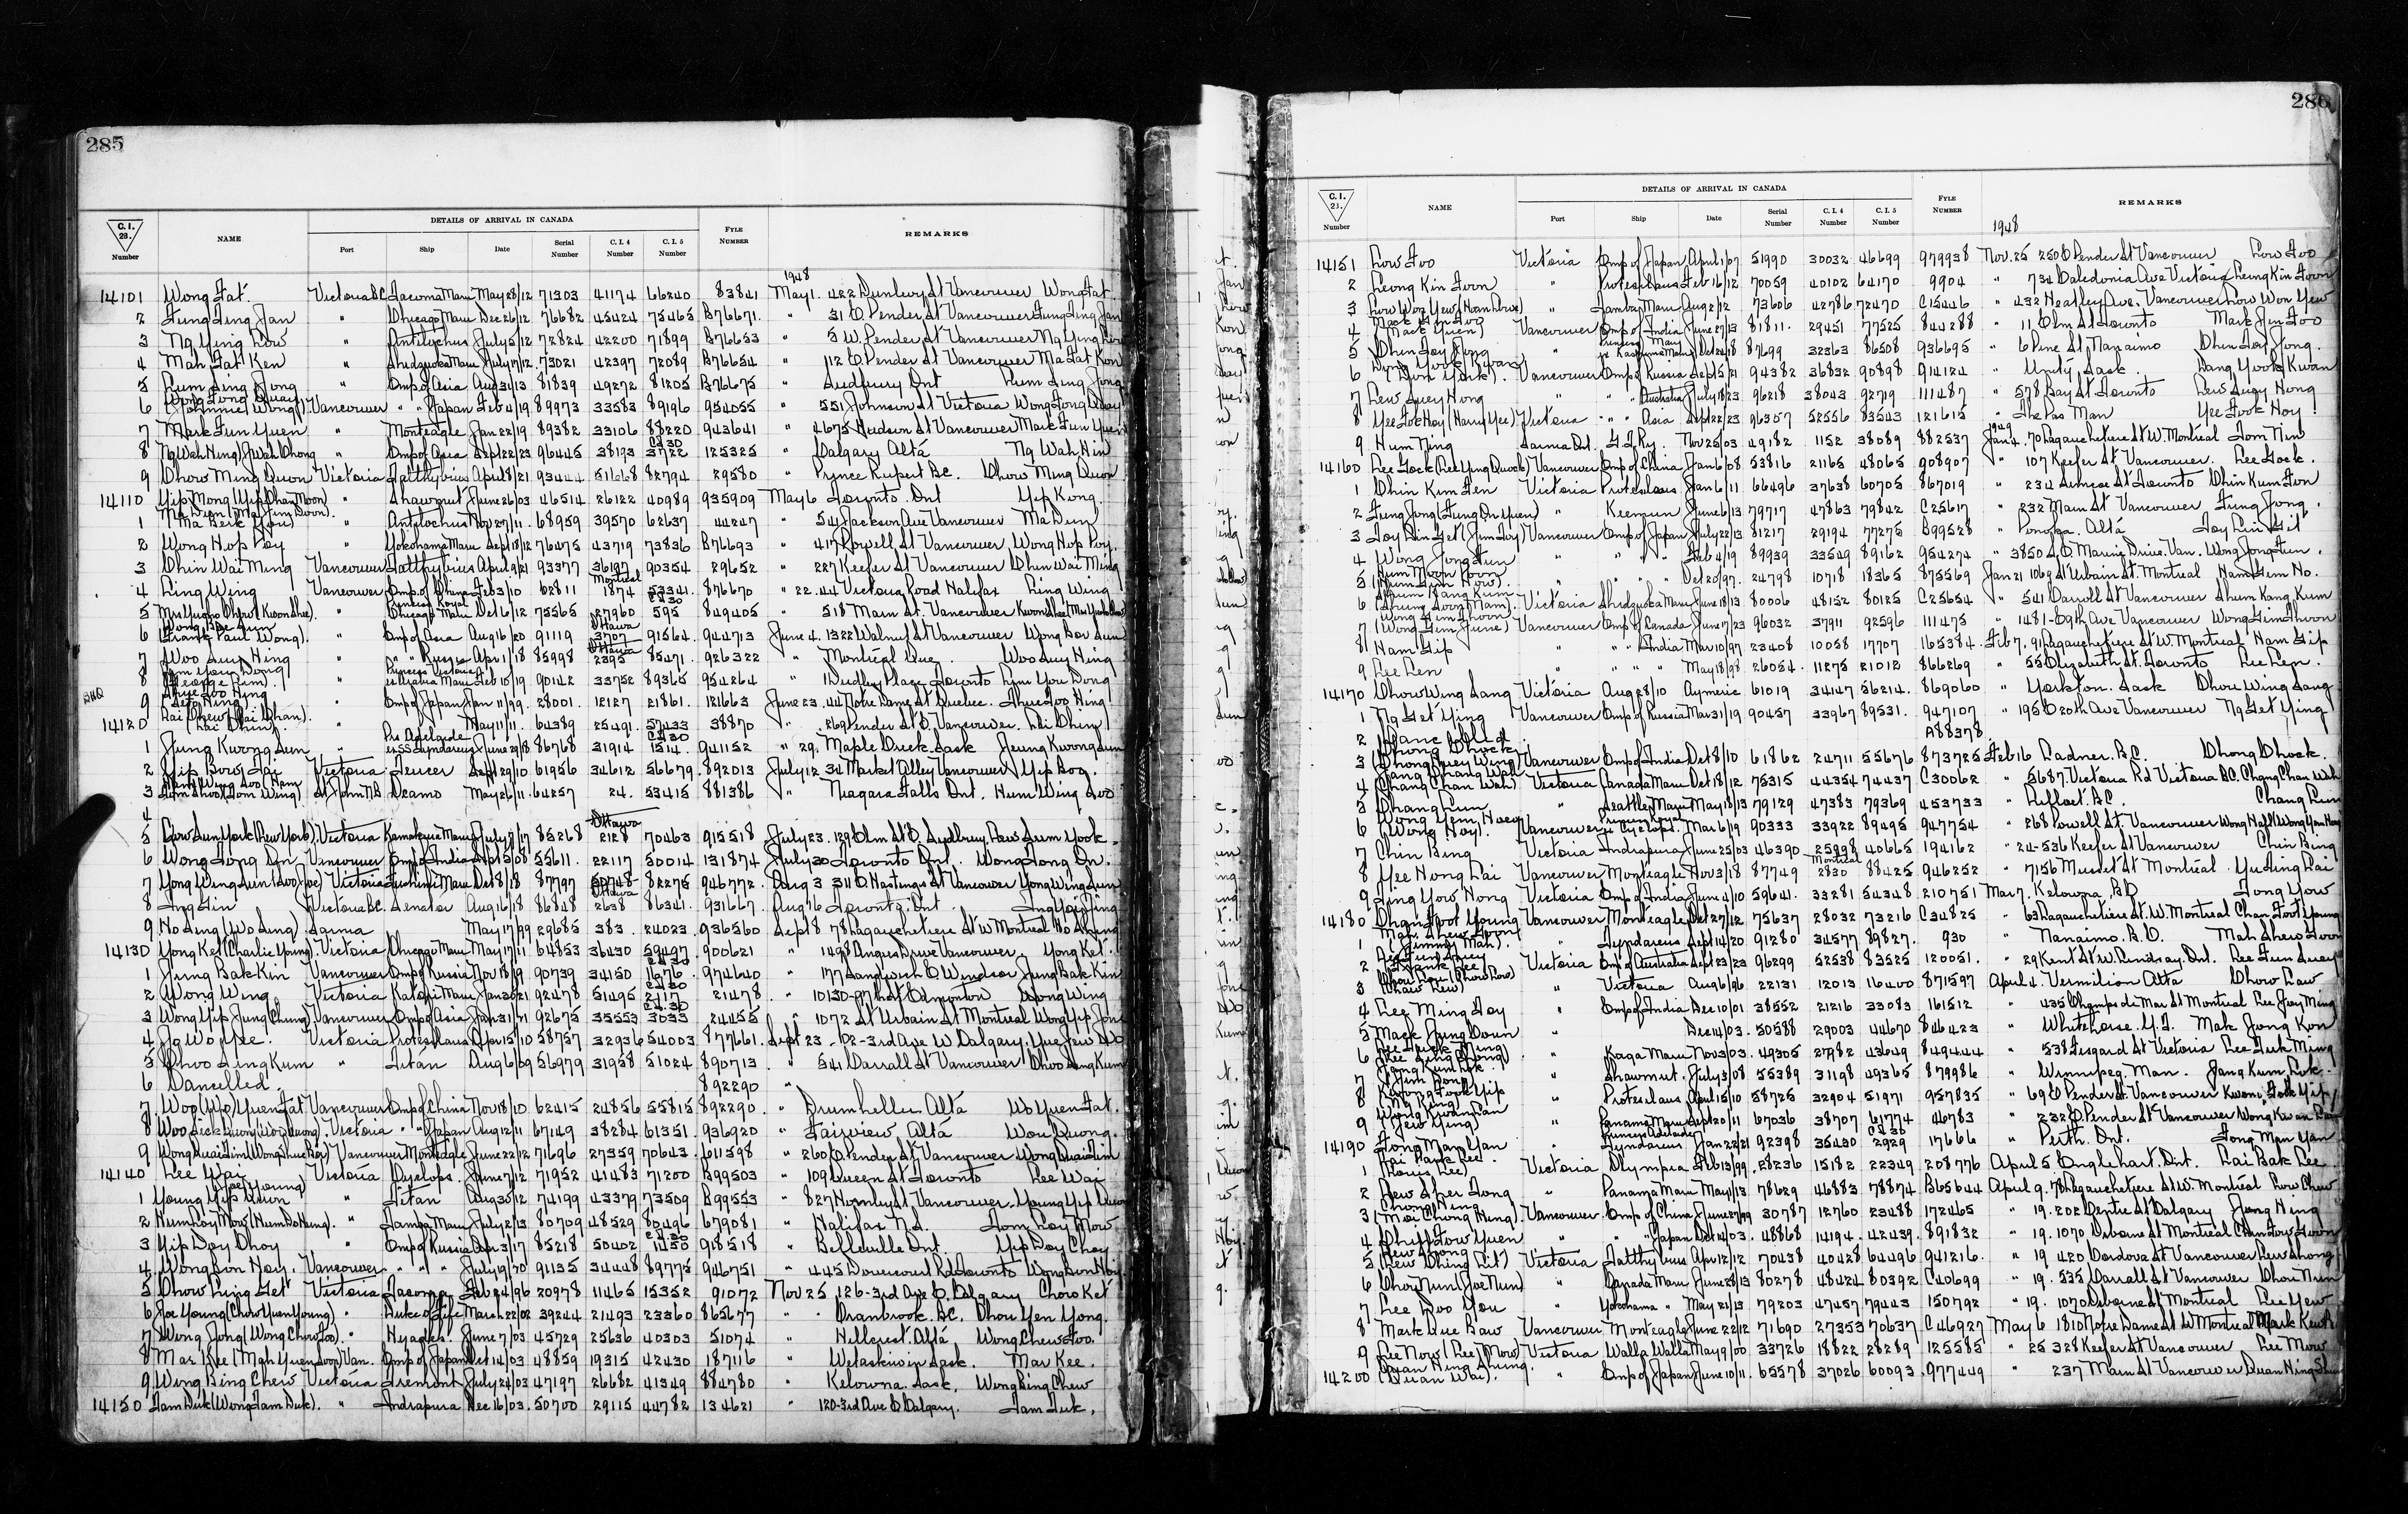 285
C.I. 28. Number NAME DETAILS OF ARRIVAL IN CANADA Port Ship Date Serial Number C.I.4 Number C.I.5 Number FYLE NUMBER REMARKS
1948
14101 Wong Fat Victoria BC Tacoma Maru May 28/12 71303 41174 66240 83841 May 1. 422 Dunlevy St Vancouver Wong Fat
2 Fung Jing Jan " Chicago Maru Dec 26/12 76682 45424 75465 B76671. " 31 E Pender St Vancouver Fung Jing Jan
3 Ng Ying Low " Antilochus July 5/12 72824 42200 71899 B76653 " 5 W. Pender St Vancouver Ng Ying
4 Mah Fat Ken " Shidzuoka Maru July 17/12. 73021 42397 72089 B76654 " 112 E Pender St Vancouver Ma Fat Kon
5 Lum Sing Jong " Emp of Asia Aug 31/13 81839 49272 81205 B76675 " Sudbury Ont Lum Sing Jong
6 Wong Fong Quay (Johnnie Wong) Vancouver " " Japan Feb 4/19 89973 33583 89196 954055 " 551 Johnson St Victoria Wong Fong Quay
7 Mark Fun Yuen " Monteagle Jan 22/19 89382 33106 88220 943641 " 4675 Hudson St Vancouver Mark Fun Yuen
8 Ng Wah Hing " Emp of Asia Sept 22/23 96445 38193 CI 30 3722 125325 " Calgary Alta Ng Wah Hin
9 Chow Ming Quon Victoria Talthybius April 8/21 93444 51668 82794 29580 " Prince Rupert B.C. Chow Ming Quon
14110 Yip Mong (Yip Chan Moon) " Shawmut June 26/03 46514 26122 40989 935909 May 6 Toronto. Ont Yip Kong.
1 Ma Dun (Ma Jim Doon). (Ma Beik You) " Antilochus Nov 27/11. 68959 39570 62637 44247 " 541 Jackson Ave Vancouver Ma Dun
2 Wong Hop Poy " Yokohama Maru Sept 18/12 76475 43719 73836 B76693 " 417 Powell St Vancouver Wong Hop Poy.
3 Chin Wai Ming Vancouver Talthybius April 9/21 93377 36197 90354 29652 " 227 Keefer St Vancouver Chin Wai Ming
4 Ling Wing Vancouver Emp of China Feb 3/10 62811 Montreal 1874 53341. 876670 " 22. 44 Victoria Road Halifax Ling Wing
5 (Kwon Shee). " Princess Royal Chicago Maru Oct 16/12 75565 27960 CI 30 595 849405 " 518 Main St. Vancouver
6 Wong Bae Sun (Frank Paul Wong). " Emp of Asia Aug 16/20 91119 Ottawa 3707 91564. 944713 June 4. 1322 Walnut St Vancouver Wong Bae Sun
7 Woo Suey Hing " " " Russia Apr 1/18 85998 Ottawa 2395 85471. 926322 " Montreal Que. Woo Suey Hing
8 Lim You Dong (George Lim). " Princess Victoria Maru Feb 15/19 90142 33752 89365 954264 " 1 Dudley Place Toronto Lim You Dong
9 Shue Foo Hing " Emp of Japan Jan 11/99. 28001. 12127 21861. 121663 June 23. 44 Notre Dame St Quebec. Shue Foo Hing
14120 Lai Chew (Lai Chan). (Lai Chin). " " " May 11/11. 64389 25491. 57433 38870 " 269 Pender St E. Vancouver. Lai Chin
1 Jung Kwong Sun " Prs Adelaide ex SS Tyndareus June 29/18 86768 31914 CI 30 1514. 941152 " 29. Maple Creek. Sask Jeung Kwong Sun
2 Yip Bow Tai Victoria Teucer Sept 29/10 61956 34612 56679. 892013 July 12 34 Market Alley Vancouver Yip Bog.
3 (Tom Wing) St John NB Ocamo May 26/11 64257 24. 53415 881386 " Niagara Falls Ont. Hum Wing Foo
4
5 Lew Sun York (Rew York). Victoria Kamakura Maru July 9/17 85268 Ottawa 2128 70463 915518 July 23. 129 Elm St E. Sudbury. Lew Sum Yook
6 Wong Jong On Vancouver Emp of India Sept 3/08 55611. 22117 50014 131874 July 30 Toronto Ont. Wong Jong On.
7 Yong Wing Sun Victoria Fushimi Maru Oct 8/18 87797 50748 82275 946772. Aug 3 311 E Hastings St Vancouver Yong Wing Sun
8 Ing Gin Victoria B.C. Senator Aug 16/18 86848 Ottawa 2638 86341. 931667. Aug 16 Toronto. Ont.
9 Ho Sing (Wo Sing) Sarnia May 17/99 29685 383. 24023 936560 Sept 8 78 Lagauchetiere St W Montreal Ho Shing
14130 Yong Ket (Charlie Young). Victoria Chicago Maru May 17/11 64853 36430 59497 900621 " 1498 Angus Drive Vancouver. Yong Ket.
1 Jung Bak Kin Vancouver Emp of Russia Nov 18/19 90739 34150 CI 30 1676. 974640 " 177 Sandwich E Windsor Jung Bak Kin
2 Wong Wing Victoria Katori Maru Jan 30/21 92478 51495 CI 30 2417 21478. " 10130-97th St Edmonton Wong Wing
3 Wong Yip Jung (Chung) Vancouver Emp of Asia Jan 31/21 92675 35553 CI 30 3033 24455 " 1072 St Urbain St Montreal Wong Yip Jong
4 Jg Wo Yee. Victoria Protesilaus Apr 15/10 58757 32936 54003 877661. Sept 23 - 102-3rd Ave W Calgary. Yue Jew Wo
5 Choo Sing Kum " Titan Aug 6/09 56979 31958 51024 890713. " 541 Carrall St Vancouver Choo Sing Kum
6 Cancelled. 892290 "
7 Woo (Wo) Yuen Fat Vancouver Emp of China Nov 18/10. 62415 24856 55815 892290. " Drumheller Alta Wo Yuen Fat.
8 Woo Seck Quong (Woo Quong). Victoria " " Japan Aug 12/11 67149 38284 61351. 936920 " Fairview Alta Wou Quong.
9 Wong Quai Sim Vancouver Monteagle June 22/12 71696 27359 70643. 611598 " 260 E Pender St Vancouver Wong Quai Sim
14140 Lee Wai Victoria Cyclops. June 7/12 71952 41483 71200 B99503 " 109 Queen St Toronto Lee Wai
1 Young Yip Quon (Joe Young) " Titan Aug 30/12 74199 43379 73509 B99553 " 827 Hornby St Vancouver. Young Yip Quon
2 Hum Loy Mow " Tamba Maru July 2/13 80709 48529 80496 679081 " Halifax N.S. Tom Loy Mow
3 Yip Doy Choy " Emp of Russia Apr 3/17 85218 50402 CI 30 1450 918518 " Belleville Ont. Yip Doy Choy
4 Wong Son Hoy. Vancouver " " " July 19/20 91135 34448 89775 946751 " 445 Dovercourt Rd Toronto Wong Son Hoy
5 Chow Ling Get Victoria Tacoma Feb 24/96 20978 11465 15352 91072 Nov 25, 126-3rd Ave E. Calgary Chow Ket
6 Joe Young (Chow Yuen Young) " Duke of Fife March 22/02 39244 21493 23360 865677 " Cranbrook. B.C. Chou Yen Yong.
7 Wong Jong (Wong Chew Foo). " Hyades June 7/03 45729 25636 40303 51074 " Hillcrest. Alta Wong Chew Foo.
8 Mar Kee (Mah Yuen Soon) Van. Emp of Japan Oct 14/03 48859 19315 42430 187116 " Wetaskiwin Sask. Mar Kee.
9 Wing Bing Chew Victoria Tremont July 24/03 47197 26682 41349 884780 " Kelowna. Sask. Wong Bing Chew
14150 Tam Duk (Wong Tam Duk). " Indrapura Dec 16/03. 50700 29115 44782 134621 " 120-3rd Ave E Calgary. Tam Tuk.
286
C.I. 28. Number NAME DETAILS OF ARRIVAL IN CANADA Port Ship Date Serial Number C.I.4 Number C.I.5 Number FYLE NUMBER REMARKS
1948
14151 Low Foo Victoria Emp of Japan April 1/07 51990 30032 46699 979938 Nov. 25 250 E Pender St Vancouver Low Foo
2 Leong Kin Foon " Protesilaus Feb 16/12 70059 40102 64170 9904 " 734 Caledonia Ave Victoria Leong Kin Foon
3 Low Won Yew " Tamba Maru Aug 2/12 73606 42786 72470 C15446 " 432 Heatley Ave. Vancouver Low Won Yew
4 Mack Jin Foo (Mark Yuen) Vancouver Emp of India June 27/13 81811. 29451 77525 844288 " 11 Elm St Toronto Mark Jin Foo
5 Chin Loy Jong " Princess Mary ex Kashima Maru Oct 26/18 87699 32363 86508 936695 " 6 Pine St. Nanaimo Chin Loy Jong.
6 Dong Yook Kwan (Don York). Vancouver Emp of Russia Sept 5/21 94382 36832 90898 914124 " Unity, Sask. Dang Yook Kwan
7 Lew Suey Hong " " " Australia July 18/23 96218 38043 92719 111487 " 578 Bay St Toronto Lew Suey Hong
8 Yee Foo Hoy (Harry Yee) Victoria " " Asia Sept 22/23 96357 52556 83543 121615 " The Pas Man Yee Fook Hoy
1949
9 Hum Ning Sarnia Ont. G.T. Ry. Nov 25/03 49182 1152 38089 882537 Jan 4. 70 Lagauchetiere St W. Montreal Tom Nin
14160 Lee Gock (Lee Ying Quock) Vancouver Emp of China Jan 6/08 53816 21165 48065 908907 " 107 Keefer St Vancouver. Lee Gock.
1 Chin Kim Fen Victoria Protesilaus Jan 6/11 66496 37638 60705 867019 " 234 Simcoe St Toronto Chin Kum Fon
2 Fung Jong (Fung On Yuen) " Keemun June 6/13 79717 47863 79842 C25617 " 232 Main St Vancouver Fung Jong.
3 Loy Din Get (Jim Loy) Vancouver Emp of Japan July 22/13 81217 29194 77275 B99528 " Ponoka. Alta Loy Lin Git
4 Wong Jong Fun " " " " Feb 4/19 89939 33549 89162 954274 " 3850 S.E Marine Drive. Van. Wong Jong Fun.
5 Hum Moon Poon " " " " Oct 20/97. 24798 10718 18365 875569 Jan 21 1069 St Urbain St. Montreal Ham Sem Ho.
6 Shum Kang Kum (Shum Soon Mam). Victoria Shidzuoka Maru June 18/13. 80006 48152 80125 C25654 " 541 Carrall St Vancouver Shum Kang Kum
7 Wong Gim Choon (Wong Gim June) Vancouver Emp of Canada June 17/23 96032 37911 92596 111475 " 1481-E 9th Ave Vancouver Wong Gim Choon
8 Ham Sip " " " India Mar 10/97 23408 10058 17707 165384. Feb 7. 91 Lagauchetiere St W. Montreal Ham Sip
9 Lee Len " " " " May 18/98 26054. 11275 21012 866269 " 55 Elizabeth St. Toronto Lee Len.
14170 Chow Wing Sang Victoria Aug 28/10 Aymeric 61019 34147 56214. 869060 " Yorkton. Sask Chow Wing Sang
1 Ng Get Ying Vancouver Emp of Russia Mar 31/19 90457 33967 89531. 947107 " 195 E 20th Ave Vancouver Ng Get Ying
2 Cancelled A88378
3 Chong Chock (Chong Suey Wing) Vancouver Emp of India Oct 8/10 61862 24711 55676 873725 Feb 16 Ladner. B.C. Chong Chock.
4 Jang Chang Wah (Chang Chan Wah) Victoria Canada Maru Oct 18/12 75315 44354 74437 C30062 " 5687 Victoria Rd Victoria B.C. Chang Chan Wah
5 Chang Lun " Seattle Maru May 18/13 79129 47383 79369 453733 " Lillooet. B.C. Chang Lun
6 (Wong Hoy). Vancouver ex Cyclops. Mar 6/19 90333 33922 89495 947754 " 268 Powell St. Vancouver
7 Chin Bing Victoria Indrapura June 25/03 46390 25998 40665 194162 " 24-536 Keefer St Vancouver Chin Bing
8 Yee Hong Lai Vancouver Monteagle Nov 3/18 87749 Montreal 2830 88425 946252 " 7156 Musset St Montreal
9 Jing Yow Hong Victoria Emp of India June 4/10 59641. 33281 54348 210751 Mar 7. Kelowna, B.C Jong Yow
14180 Chan Foot Young Vancouver Monteagle Oct 27/12 75637 28032 73216 C34825 " 63 Lagauchetiere St. W. Montreal Chan Foot Young
1 Mah Shew Foon (Jimmy Mah). " Tyndareus Sept 14/20 91280 34577 89827. 930 " Nanaimo. B.C. Mah Shew Foon
2 Lee Fun Suey (Frank Lee) Victoria Emp of Australia Sept 23/23 96299 52538 83525 120051. " 29 Kent St W. Lindsay. Ont. Lee Fun Suey
3 Chow Law " Victoria Aug 6/96 22131 12013 16400 871597 April 4. Vermilion Alta Chow Law
4 Lee Ming Joy " Emp of India Dec 10/01 38552 21216 33083 161512 " 435 Champs de Mars St Montreal Lee Joy Ming
5 Mack Jung Coun " Dec 14/03. 50588 29003 44670 846423 " Whitehorse. Y.T. Mak Jung Kon
6 Lee Duck Ming " Kaga Maru Nov 3/03. 49305 27982 43649 849444 " 538 Fisgard St Victoria Lee Tuk Ming
7 Jang Kum Lok. (Jim Bong) " Shawmut. July 3/08 55389 31198 49365 879986 " Winnipeg. Man. Jang Kum Lok.
8 Kwong Fook Yip " Protesilaus April 15/10 58725 32904 51971 957835 " 69 E Pender St. Vancouver Kwong Fook Yip
9 Wong Kwan Lan (Jew Ying) " Panama Maru Sept 20/11 67036 38707 61774 46783 " 232 E Pender St Vancouver Wong Kwan Lan
14190 Tong Man Yan " Princess Adelaide Tyndareus Jan 22/21 92398 35430 CI 30 2929 17666 " Perth. Ont. Tong Man Yan
1 Lai Park Lee. (Louis Lee) Victoria Olympia Feb 13/99. 28236 15182 22349 208776 April 5. Englehart. Ont. Lai Bak Lee
2 Lew Sher Tong " Panama Maru May 1/13 78629 46883 78874 B65644 April 9. 78 Lagauchetiere St W. Montreal Low Chew
3 Chong Hing (Moi Chong Hing). Vancouver. Emp of China June 27/99 30787 12760 23488 172465 " 19. 202 Centre St Calgary Jong Hing
4 " " Japan Oct 14/03. 48868 14194. 42439. 891832 " 19. 1070 Osborne St Montreal
5 Lew Shong (Lew Ching Lit) Victoria Talthybius Apr 12/12 70438 40428 64496 941216. " 19 420 Cordova St Vancouver Lew Shong
6 Chow Nun (Joe Nun) " Canada Maru June 28/13 80278 48424 80392 C40699 " 19. 535 Carrall St Vancouver Chow Nun
7 Lee Doo You " Yokohama " May 21/13 79203 47457 79443 150792 " 19. 1070 Osborne St Montreal Lee Yew
8 Mark Que Baw Vancouver Monteagle June 22/12 71690 27353 70637 C46927 May 6 1810 Notre Dame St W Montreal
9 Lee Now (Lee Mow) Victoria Walla Walla May 9/00 33726 18822 28289 125585 " 25 328 Keefer St Vancouver Lee Mow
14200 Quan Hing Shung. (Quan Wai). " Emp of Japan June 10/11. 65578 37026 60093. 977449 " 237 Main St Vancouver Quan Hing Shung